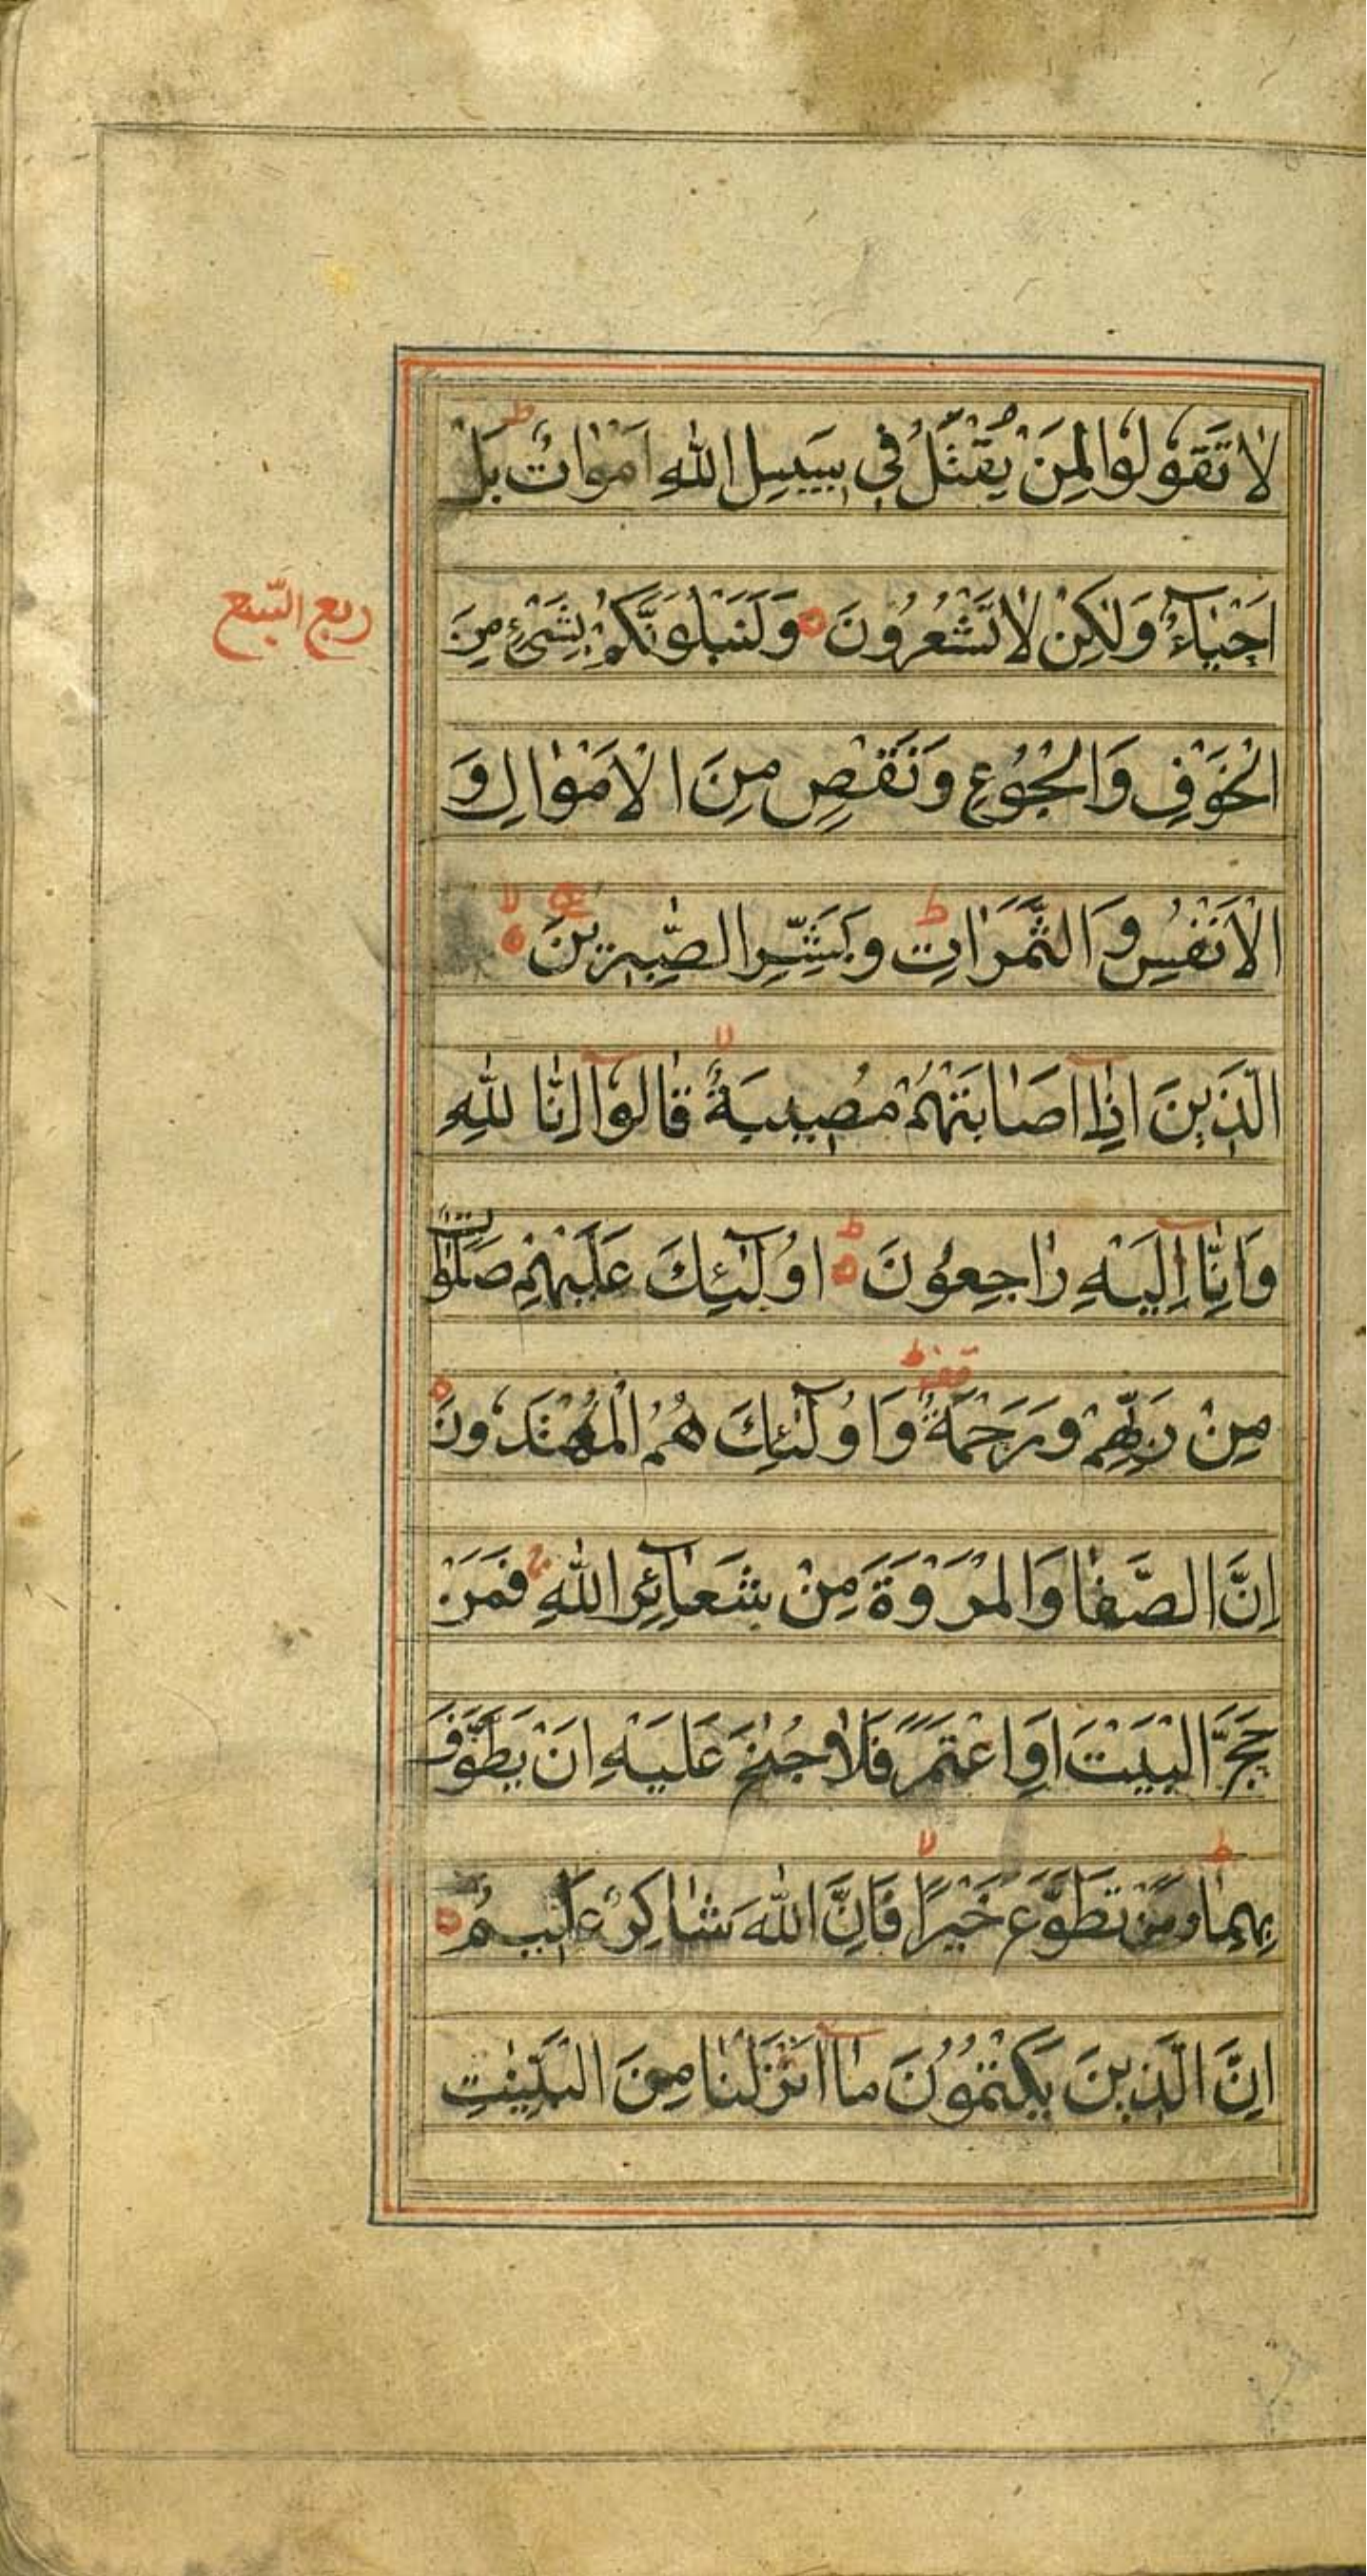 لَا تَقُولُوا لِمَنْ يُقْتَلُ فِي سَبِيلِ اللّٰهِ اَمْوَاتٌ بَلْ
ط
اَحْيَآءٌ وَلٰكِنْ لَا تَشْعُرُونَ وَلَنَبْلُوَنَّكُمْ بِشَيْءٍ مِنَ
ربع السبع
الْخَوْفِ وَالْجُوعِ وَنَقْصٍ مِنَ الْاَمْوَالِ وَ
الْاَنْفُسِ وَالثَّمَرَاتِ ط وَبَشِّرِ الصّٰبِرِينَ لا
الَّذِينَ اِذَآ اَصَابَتْهُمْ مُصِيبَةٌ لا قَالُوٓا اِنَّا لِلّٰهِ
وَاِنَّآ اِلَيْهِ رَاجِعُونَ ط اُولٰٓئِكَ عَلَيْهِمْ صَلَوٰاتٌ
مِنْ رَبِّهِمْ وَرَحْمَةٌ قف ط وَاُولٰٓئِكَ هُمُ الْمُهْتَدُونَ
اِنَّ الصَّفَا وَالْمَرْوَةَ مِنْ شَعَآئِرِ اللّٰهِ ج فَمَنْ
حَجَّ الْبَيْتَ اَوِ اعْتَمَرَ فَلَا جُنٰحَ عَلَيْهِ اَنْ يَطَّوَّفَ
بِهِمَا ط وَمَنْ تَطَوَّعَ خَيْرًا لا فَاِنَّ اللّٰهَ شَاكِرٌ عَلِيمٌ
اِنَّ الَّذِينَ يَكْتُمُونَ مَآ اَنْزَلْنَا مِنَ الْبَيِّنٰتِ